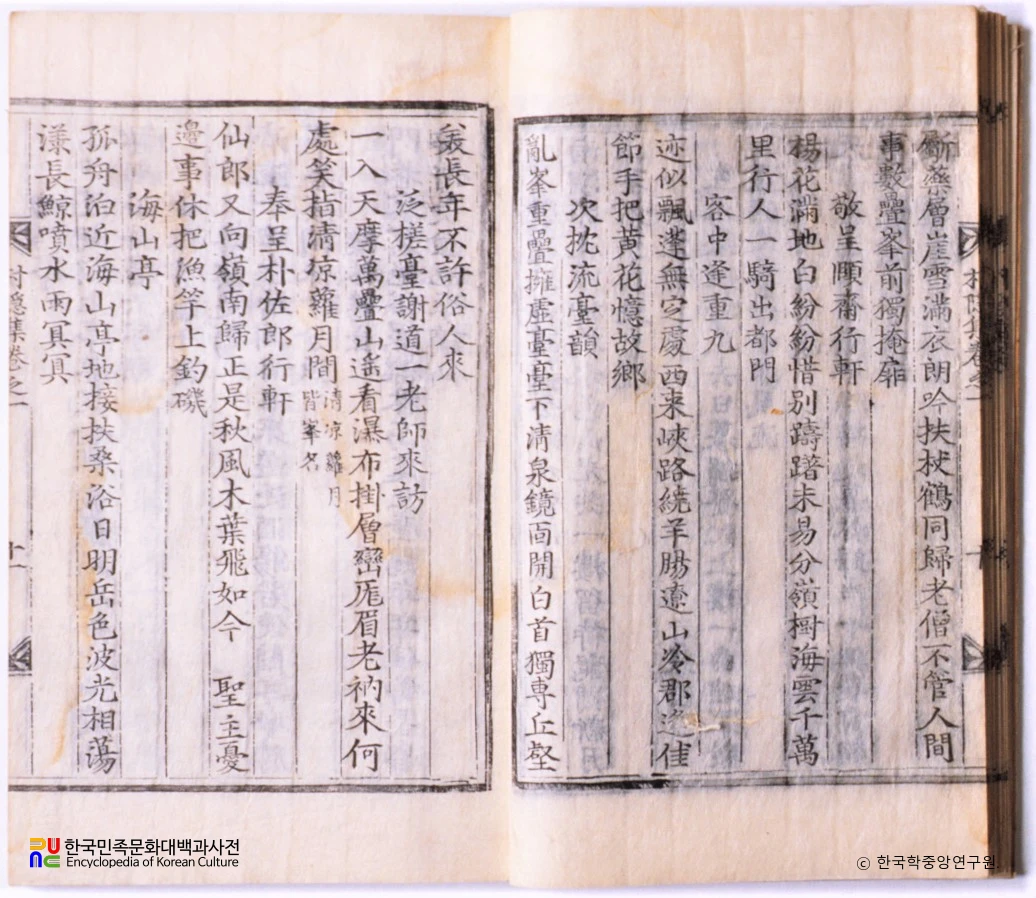 斸藥層崖雪滿衣朗吟扶杖鶴同歸老僧不管人間
事數疊峯前獨掩扉
敬呈順齋行軒
楊花滿地白紛紛惜別躊躇未易分嶺樹海雲千萬
里行人一騎出都門
客中逢重九
迹似飄蓬無定處西来峽路繞羊膓遼山冷郡逢佳
節手把黃花憶故鄉
次枕流臺韻
亂峯重疊擁虛臺臺下清泉鏡面開白首獨專丘壑
羙長年不許俗人來
泛槎臺謝道一老師來訪
一入天摩萬疊山遙看瀑布掛層巒厖眉老衲來何
處笑指清凉蘿月間 清凉蘿月皆峯名
奉呈朴佐郎行軒
仙郎又向嶺南歸正是秋風木葉飛如今 聖主憂
邊事休把漁竿上釣磯
海山亭
孤舟泊近海山亭地接扶桑浴日明岳色波光相蕩
漾長鯨噴水雨冥冥
村隱集卷之一
十一
村隱集卷之一
十
한국민족문화대백과사전
Encyclopedia of Korean Culture
ⓒ 한국학중앙연구원.